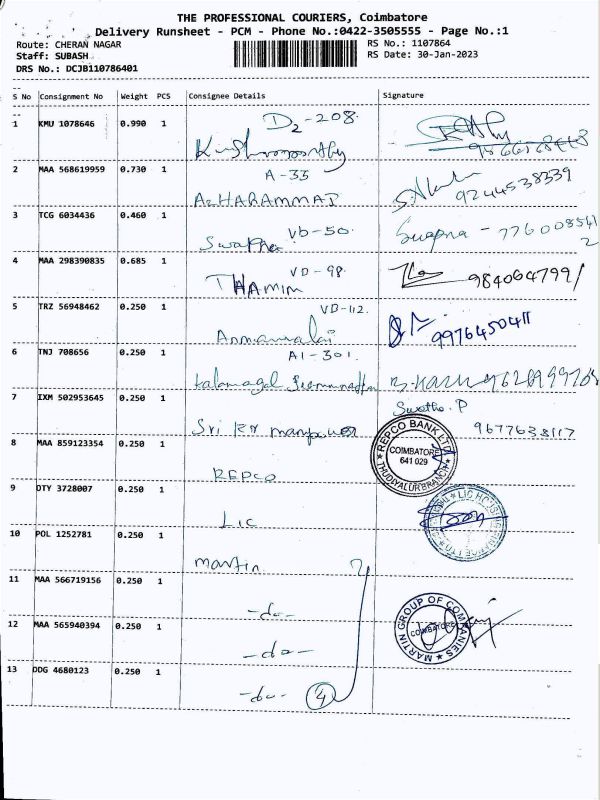 THE PROFESSIONAL COURIERS, Coimbatore
Delivery Runsheet - PCM - Phone No.:0422-3505555 - Page No.:1
Route: CHERAN NAGAR RS No.: 1107864
Staff: SUBASH RS Date: 30-Jan-2023
DRS No.: DCJB110786401
S No Consignment No Weight PCS Consignee Details Signature
D2-208
1 KMU 1078646 0.990 1
A-33
2 MAA 568619959 0.730 1 9244538339
AZHARAMMAJ
VD-50
3 TCG 6034436 0.460 1 Swapna - 7760085412
Swapna
VD-98
4 MAA 298390835 0.685 1 9840647991
THAMIM
VD-112
5 TRZ 56948462 0.250 1 9976450411
Annamalai
A1-301
6 TNJ 708656 0.250 1
7 IXM 502953645 0.250 1 Swatho.P
Sri KR manpower 9677638117
8 MAA 859123354 0.250 1 REPCO BANK LTD
COIMBATORE
641 029
THUDIYALUR BRANCH
REPCO
9 DTY 3728007 0.250 1
LIC
10 POL 1252781 0.250 1
martin
11 MAA 566719156 0.250 1
-do-
12 MAA 565940394 0.250 1 MARTIN GROUP OF COMPANIES
COIMBATORE
-do-
13 DDG 4680123 0.250 1
-do- 4